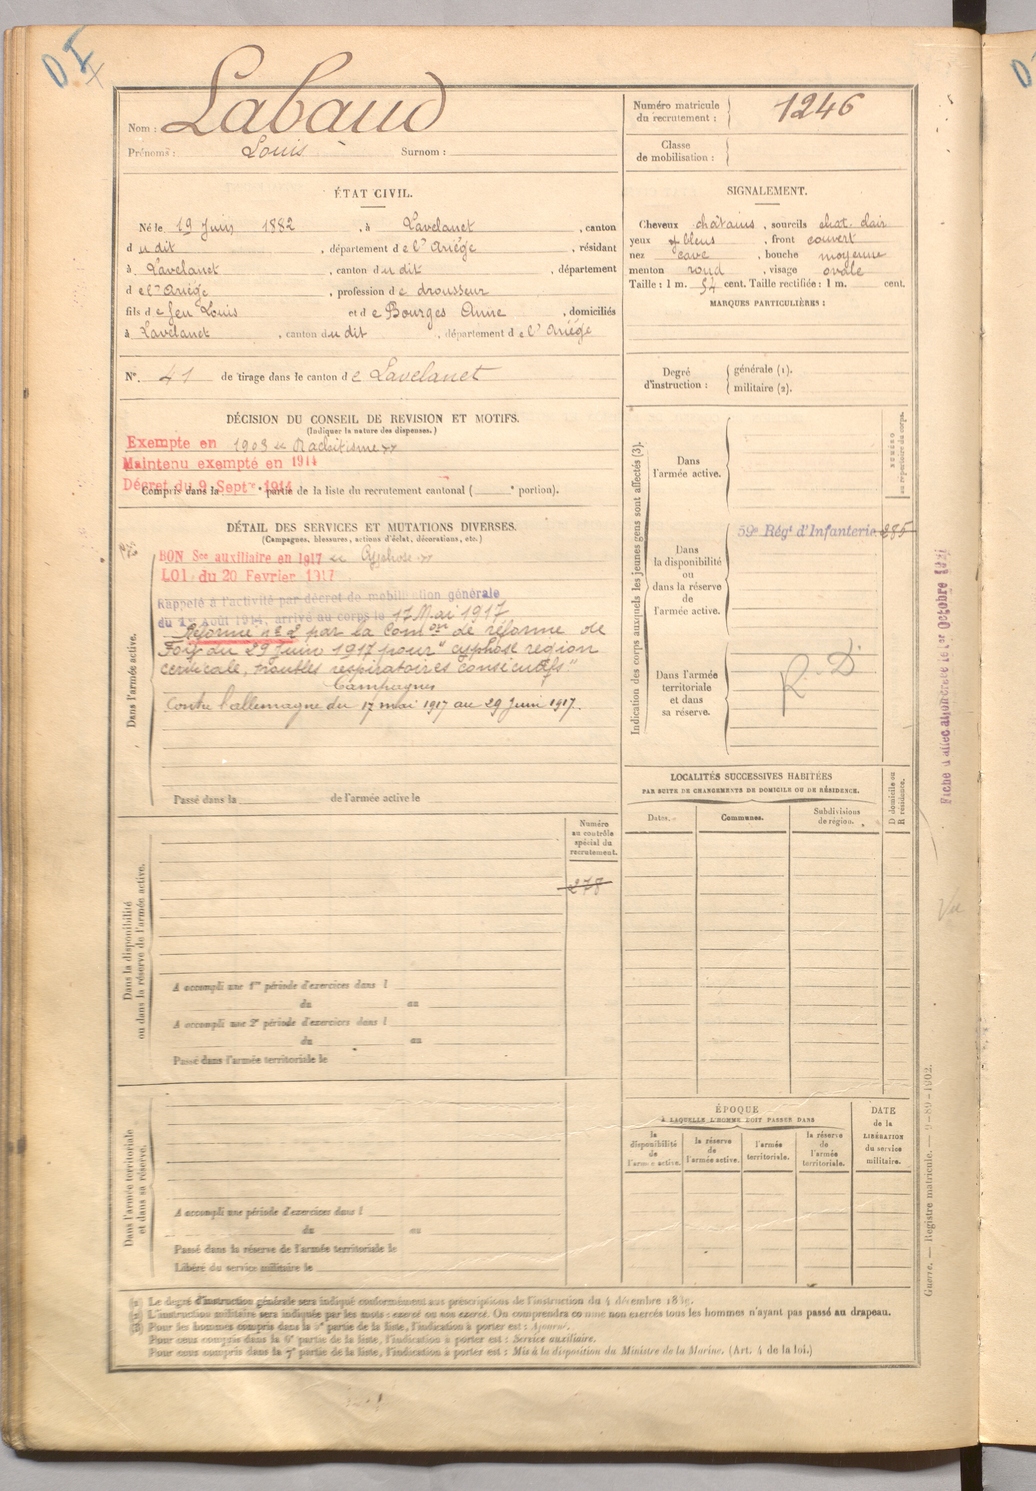 D I
Nom : Labaud
Prénoms : Louis Surnom :
Numéro matricule
du recrutement : 1246
Classe
de mobilisation :
ÉTAT CIVIL.
Né le 19 Juin 1882, à Lavelanet, canton
dudit, département de l'Ariège, résidant
à Lavelanet, canton dudit, département
de l'Ariège, profession de drousseur
fils de feu Louis et de Bourges Anne, domiciliés
à Lavelanet, canton dudit, département de l'Ariège
N°. 41 de tirage dans le canton de Lavelanet
SIGNALEMENT.
Cheveux châtains, sourcils chat. clair
yeux bleus, front couvert
nez cave, bouche moyenne
menton rond, visage ovale
Taille : 1 m. 54 cent. Taille rectifiée : 1 m. cent.
MARQUES PARTICULIÈRES :
Degré
d'instruction :
générale (1).
militaire (2).
DÉCISION DU CONSEIL DE REVISION ET MOTIFS.
(Indiquer la nature des dispenses.)
Exempte en 1903 « Rachitisme »
Maintenu exempté en 1914
Décret du 9 Septre 1914
Compris dans la e partie de la liste du recrutement cantonal ( e portion).
DÉTAIL DES SERVICES ET MUTATIONS DIVERSES.
(Campagnes, blessures, actions d'éclat, décorations, etc.)
Dans l'armée active.
BON Sce auxiliaire en 1917 « Cyphose »
LOI du 20 Fevrier 1917
Rappelé à l'activité par décret de mobilisation générale
du 1er Août 1914, arrivé au corps le 17 Mai 1917
Réformé n° 2 par la Comon de réforme de
Foix du 29 Juin 1917 pour "cyphose région
cervicale, troubles respiratoires consécutifs"
Campagnes
Contre l'allemagne du 17 mai 1917 au 29 Juin 1917.
Passé dans la de l'armée active le
Indication des corps auxquels les jeunes gens sont affectés (3).
NUMÉRO
au répertoire du corps.
Dans
l'armée active.
Dans
la disponibilité
ou
dans la réserve
de
l'armée active.
59e Régt d'Infanterie 285
Dans l'armée
territoriale
et dans
sa réserve.
R. D
Fiche d'affectation créée le 1er Octobre
LOCALITÉS SUCCESSIVES HABITÉES
PAR SUITE DE CHANGEMENTS DE DOMICILE OU DE RÉSIDENCE.
Dates.
Communes.
Subdivisions
de région.
D domicile ou
R résidence.
Dans la disponibilité
ou dans la réserve de l'armée active.
Numéro
au contrôle
spécial du
recrutement.
278
Vu
A accompli une 1re période d'exercices dans l
du au
A accompli une 2e période d'exercices dans l
du au
Passé dans l'armée territoriale le
Dans l'armée territoriale
et dans sa réserve.
A accompli une période d'exercices dans l
du au
Passé dans la réserve de l'armée territoriale le
Libéré du service militaire le
ÉPOQUE
À LAQUELLE L'HOMME DOIT PASSER DANS
la
disponibilité
de
l'armée active.
la réserve
de
l'armée active.
l'armée
territoriale.
la réserve
de
l'armée
territoriale.
DATE
de la
LIBÉRATION
du service
militaire.
Guerre. — Registre matricule. — 9-89-1902.
(1) Le degré d'instruction générale sera indiqué conformément aux prescriptions de l'instruction du 4 décembre
(2) L'instruction militaire sera indiquée par les mots : exercé ou non exercé. On comprendra comme non exercés tous les hommes n'ayant pas passé au drapeau.
(3) Pour les hommes compris dans la 5e partie de la liste, l'indication à porter est : Ajourné.
Pour ceux compris dans la 6e partie de la liste, l'indication à porter est : Service auxiliaire.
Pour ceux compris dans la 7e partie de la liste, l'indication à porter est : Mis à la disposition du Ministre de la Marine. (Art. 4 de la loi.)